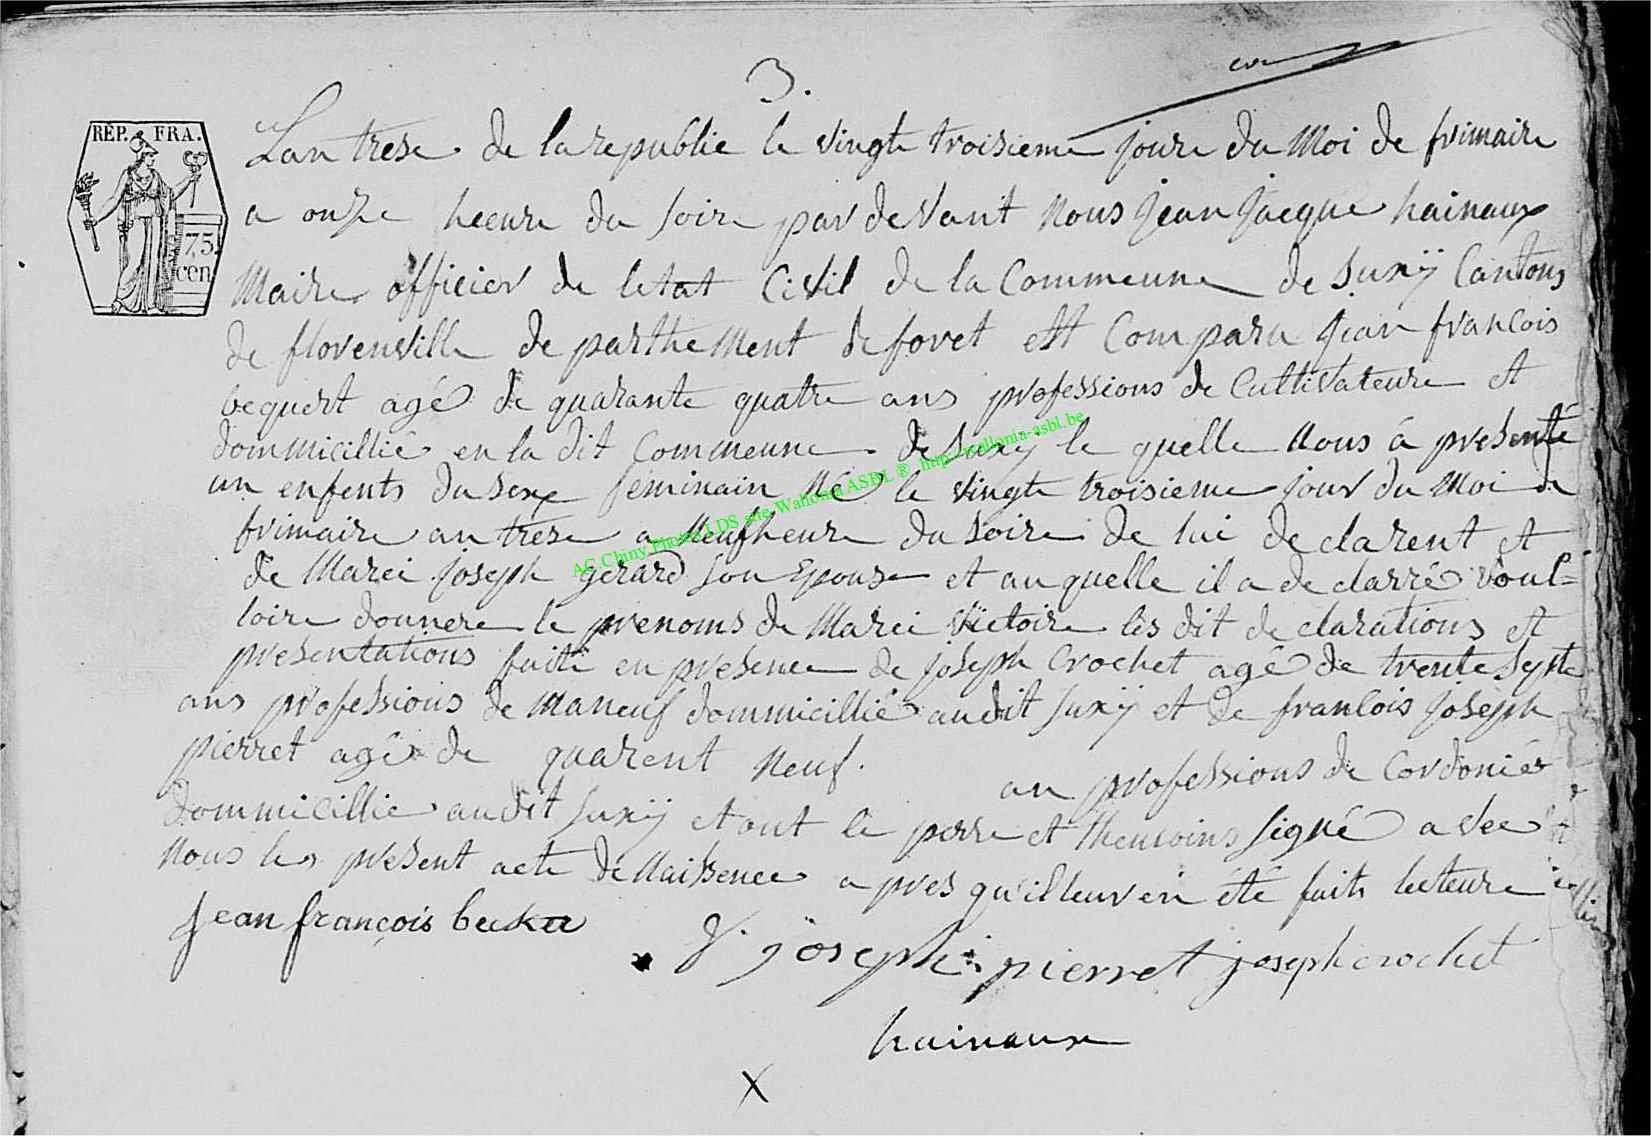 3.
RÉP. FRA.
75
cen
Lan trese de la republie le vingte troisieme joure du Moi de frimaire
a onze heeure du soire par devant Nous jean jacque hainaux
Maire officier de letat Civil de la Commeune de Suxÿ Cantons
de florenville de parthement de foret est Comparu jean francois
bequert agé de quarante quatre ans professions de Cultivateure et
dommicillié en la dit Commeune de Suxÿ le quelle Nous á presenté
un enfents du Sexe feminain Né le vingte troisieme jour du Moi de
frimaire an trese a Neuf heure du soire de lui declarent et
de Marei joseph gerard son Epouse et au quelle il a de clarré voul=
loire donnere le prenoms de Marei Victoire les dit declarations et
presentations faite en presence de joseph Crochet agé de trente Septe
ans professions de Maneuf dommicillié audit Suxÿ et de francois joseph
pierret agé de quarent Neuf. an professions de Cordonier
dommicillie audit Suxÿ et ont le perre et themoins signé a vec
Nous les present acte de Naissence a pres qu'il leur en été faite lecteure
jean françois becker
f. joseph pierret joseph crochet
hainaux
X
AC Chiny Photos LDS site Wallonia ASBL ® http://wallonia-asbl.be